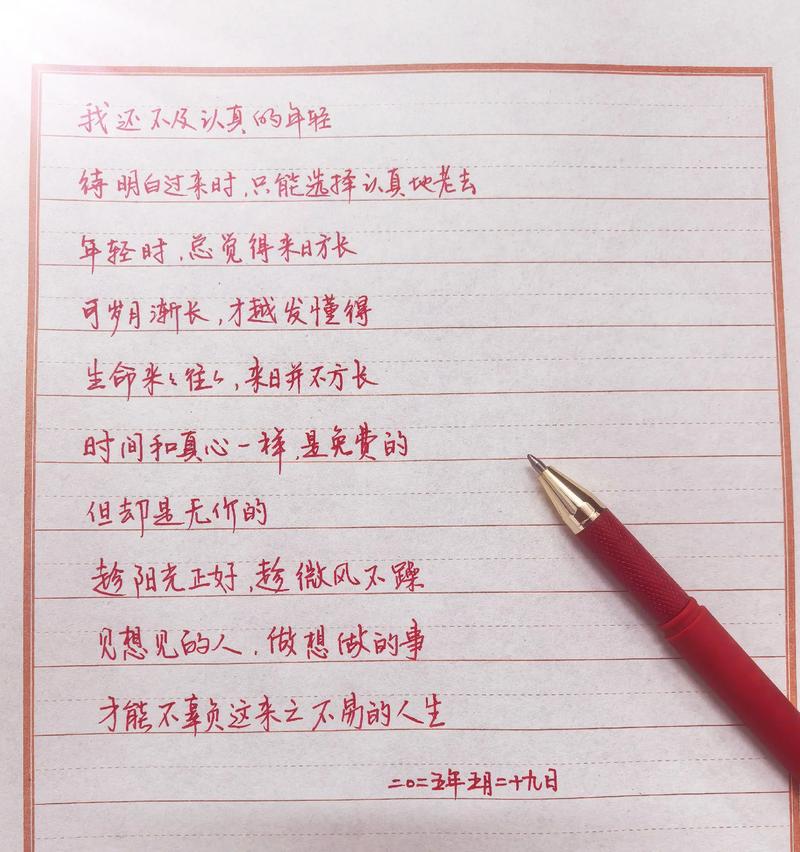 我还不及认真的年轻
待明白过来时,只能选择认真地老去
年轻时,总觉得来日方长
可岁月渐长,才越发懂得
生命来々往々,来日并不方长
时间和真心一样,是免费的
但却是无价的
趁阳光正好,趁微风不躁
见想见的人,做想做的事
才能不辜负这来之不易的人生
二〇二五年五月二十九日